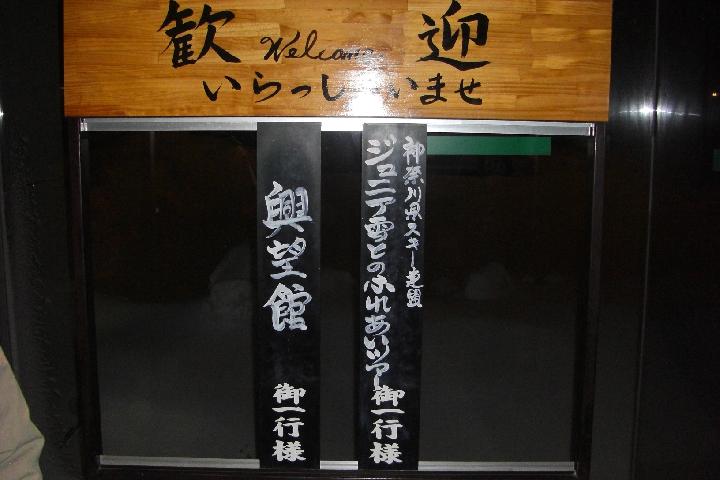 歓 Welcome 迎
いらっしゃいませ
神奈川県スキー連盟
ジュニア雪とのふれあいツアー御一行様
興望館 御一行様